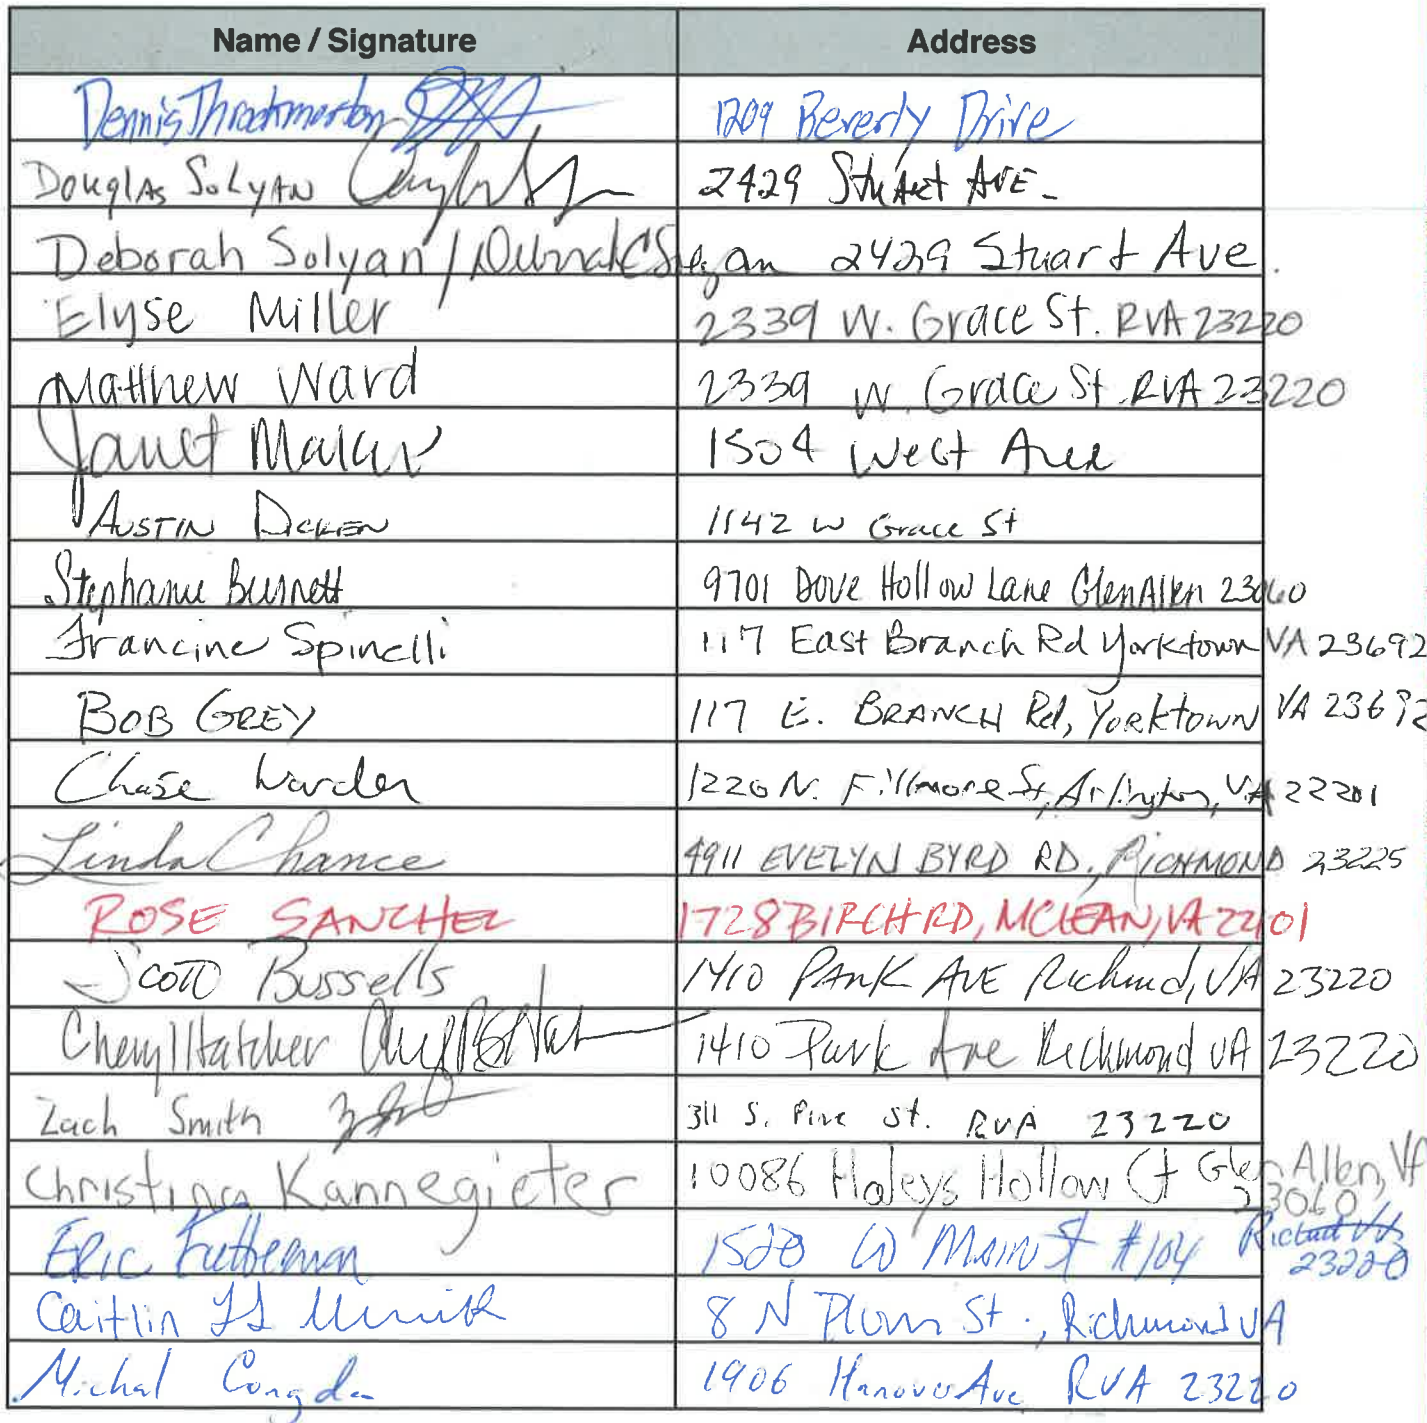 Name / Signature Address
Dennis Throckmorton 1209 Beverly Drive
Douglas Solyan 2429 Stuart Ave-
Deborah Solyan / Deborah C Solyan 2429 Stuart Ave.
Elyse Miller 2339 W. Grace St. RVA 23220
Matthew Ward 2339 W. Grace St. RVA 23220
Janet 1504 West Ave
AUSTIN DICKEN 1142 W Grace St
Stephanie Burnett 9701 Dove Hollow Lane Glen Allen 23060
Francine Spinelli 117 East Branch Rd Yorktown VA 23692
BOB GREY 117 E. BRANCH Rd, YORKTOWN VA 23692
Chase 1220 N. Fillmore St, Arlington, VA 22201
Linda Chance 4911 EVELYN BYRD RD., RICHMOND 23225
ROSE SANCHEZ 1728 BIRCH RD, MCLEAN, VA 22101
Scott Bussells 1410 PARK AVE Richmond, VA 23220
Cheryl Hatcher 1410 Park Ave Richmond VA 23220
Zach Smith 311 S. Pine St. RVA 23220
Christina Kannegieter 10086 Haleys Hollow Ct Glen Allen, VA
23060
Eric Futterman 1520 W MAIN St #104 Richmond VA
23220
Caitlin 8 N Plum St., Richmond VA
Michal Congdon 1906 Hanover Ave RVA 23220